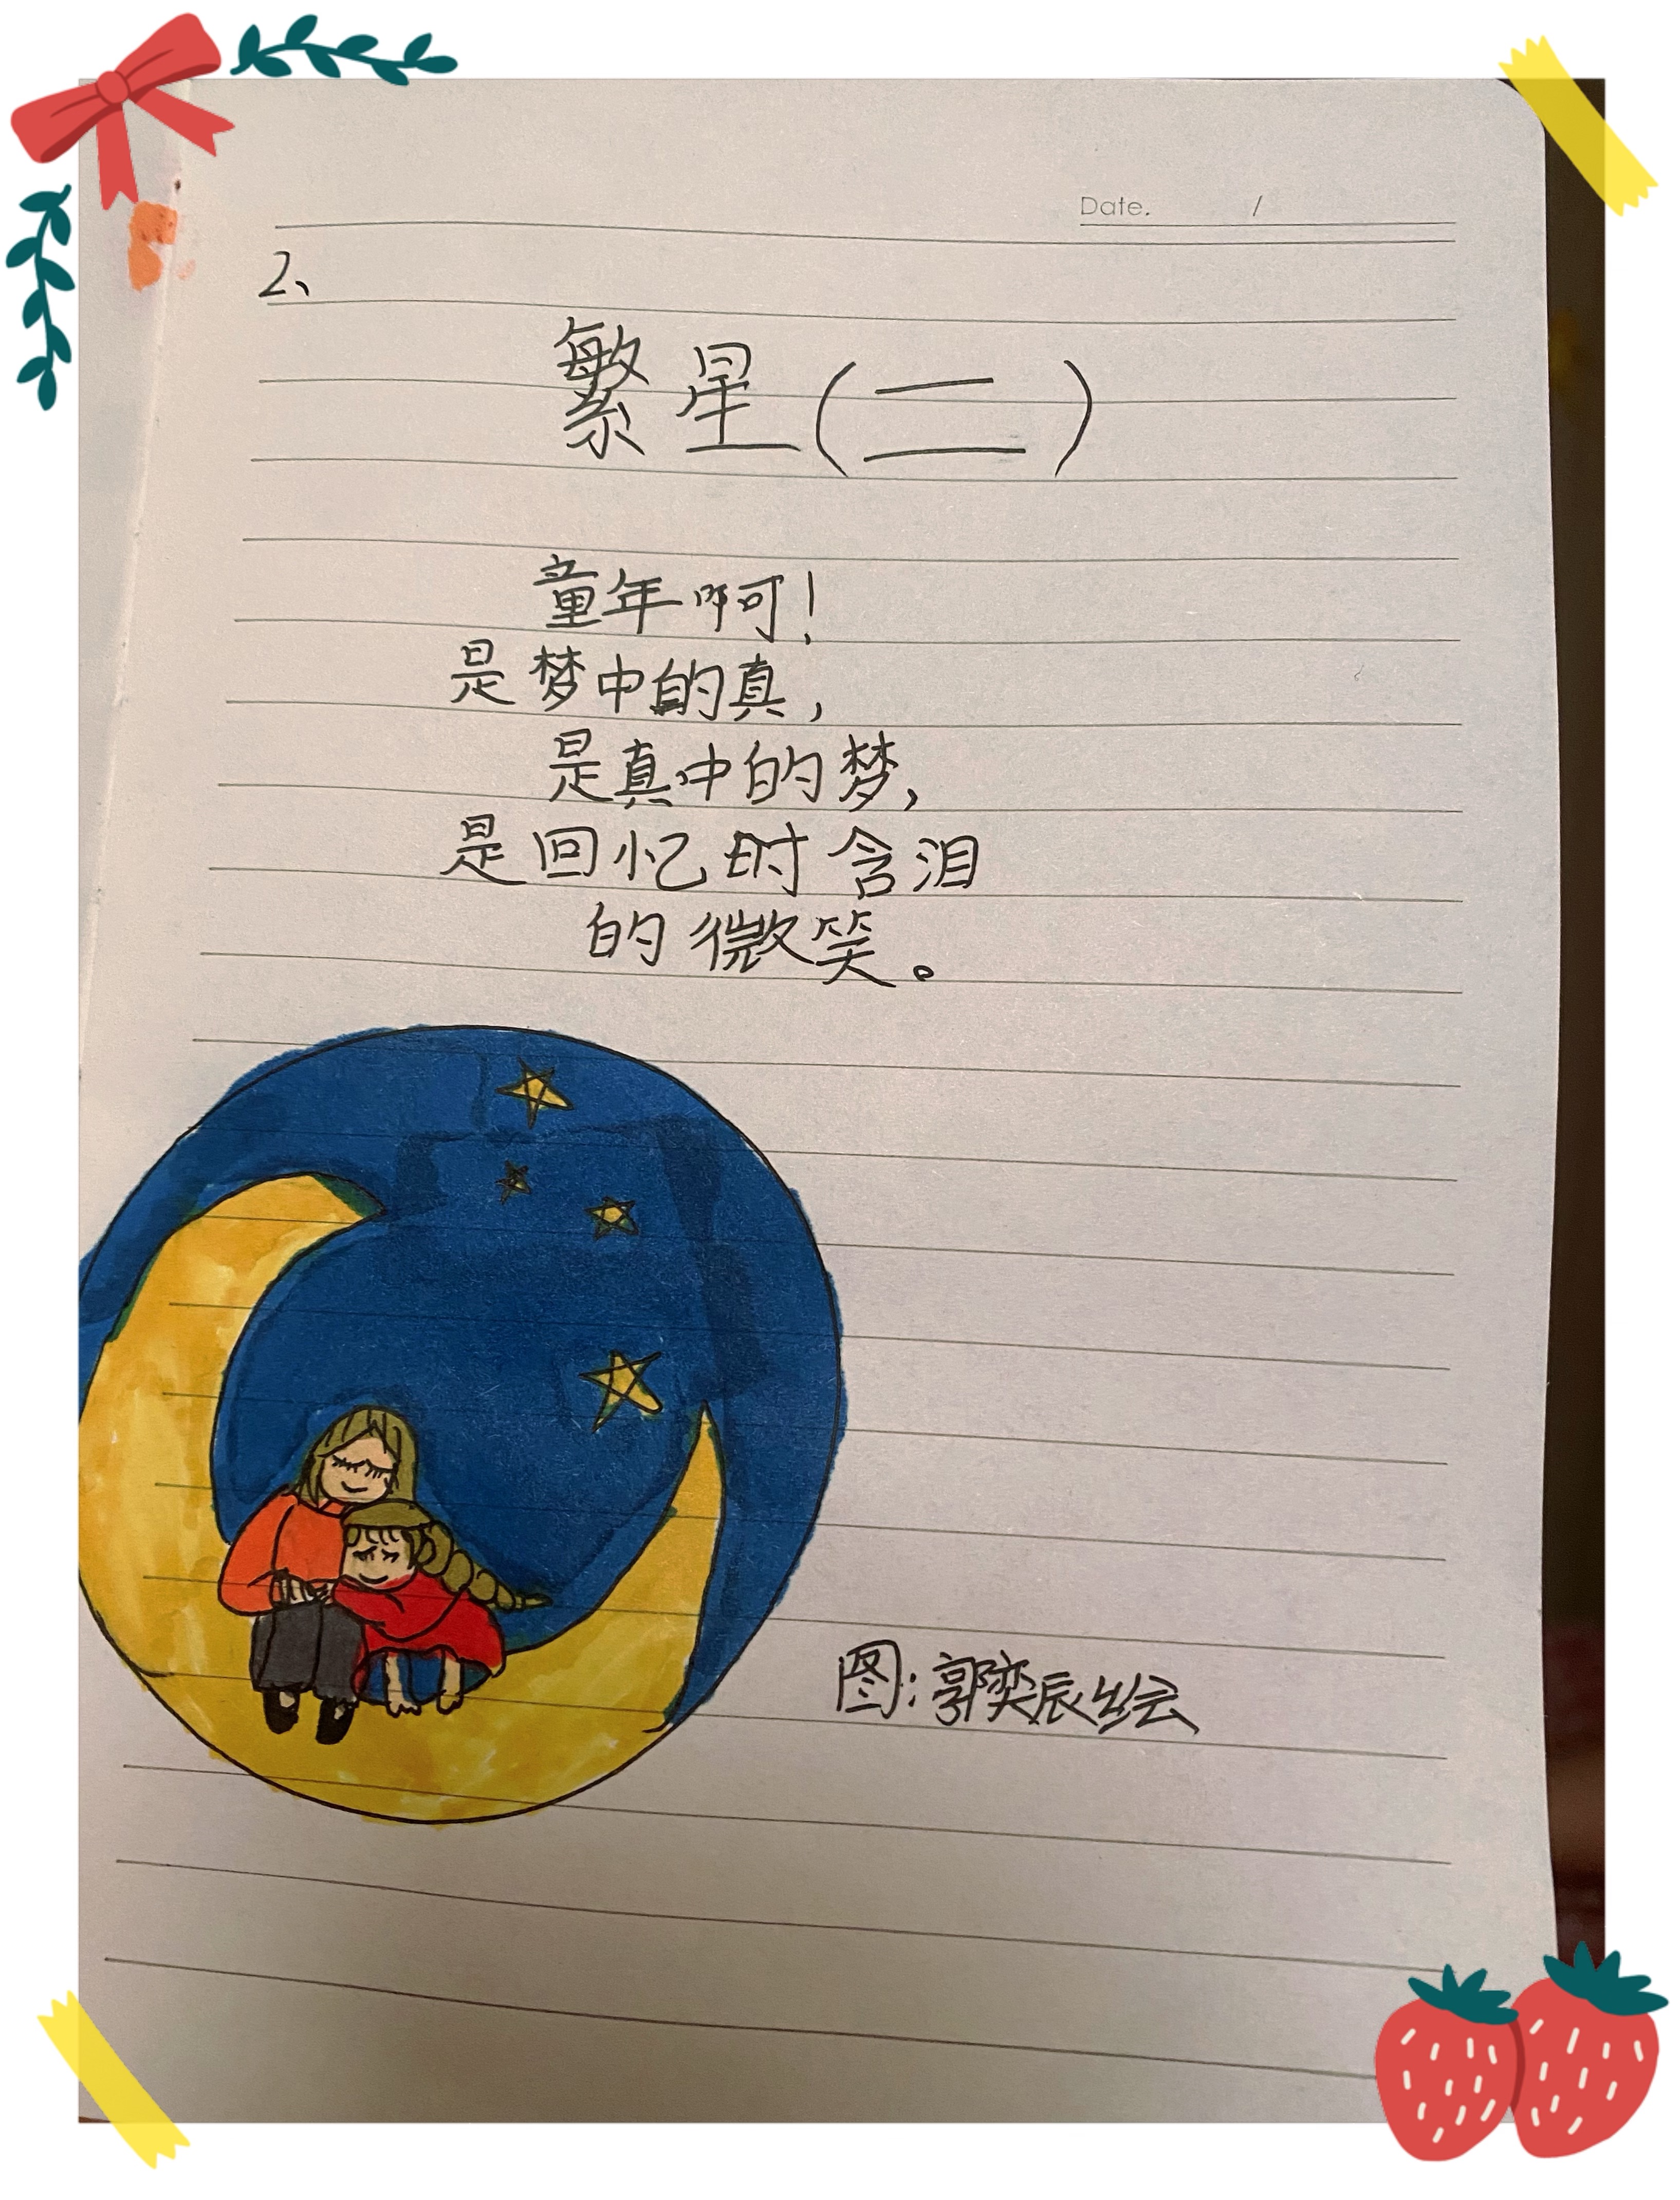 Date. /
2、
繁星(二)
童年啊!
是梦中的真,
是真中的梦,
是回忆时含泪
的微笑。
图:郭奕辰绘